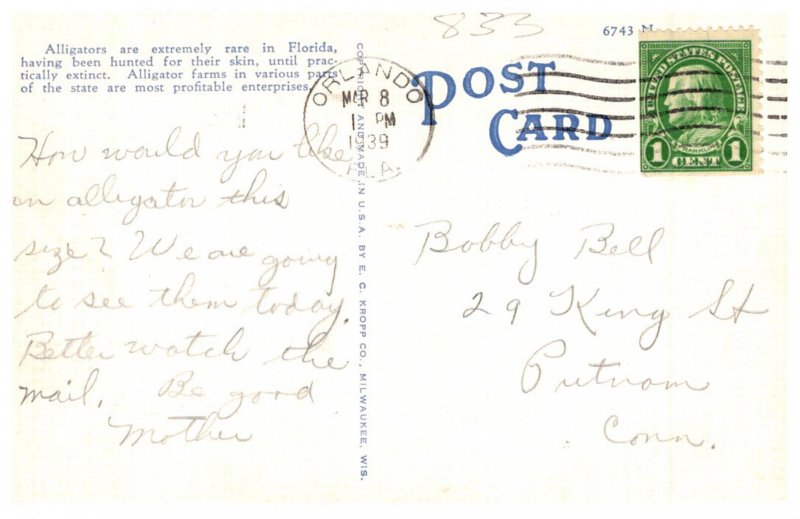 833
6743 N
Alligators are extremely rare in Florida,
having been hunted for their skin, until prac-
tically extinct. Alligator farms in various parts
of the state are most profitable enterprises.
ORLANDO
MAR 8
PM
1939
FLA.
POST
CARD
UNITED STATES POSTAGE
FRANKLIN
1 CENT 1
How would you like
an alligator this
size? We are going
to see them today.
Better watch the
mail. Be good
Mother
COPYRIGHT AND MADE IN U.S.A. BY E. C. KROPP CO., MILWAUKEE, WIS.
Bobby Bell
29 King St
Putnam
Conn.